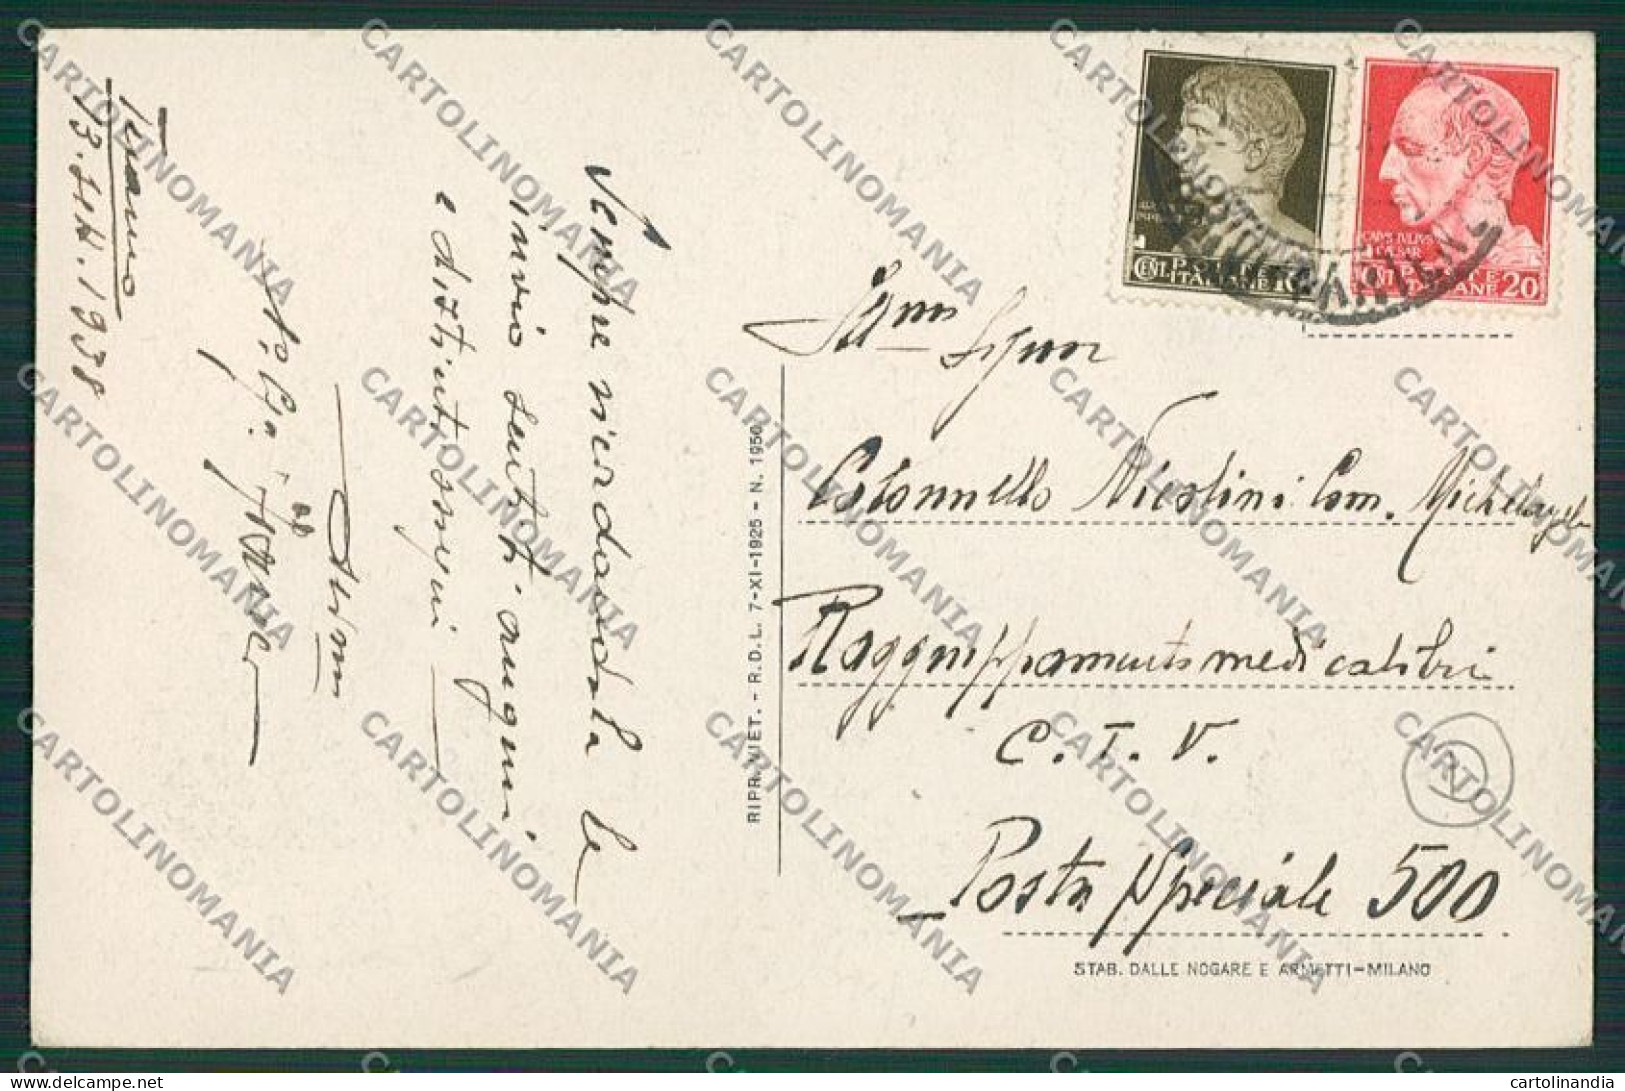 Teramo
13.4.1938
Sempre ricordandola le
invio sentiti auguri
e distintossequi
devmo
Illmo Signor
Colonnello Nicolini Com. Michelangelo
Raggruppamento medi calibri
C. T. V.
Posta Speciale 500
CENT. POSTE 10
ITALIANE
CAIVS IVLIVS
CAESAR
CENT. POSTE
ITALIANE 20
RIPR. VIET. - R.D.L. 7-XI-1925 - N. 1950
STAB. DALLE NOGARE E ARMETTI-MILANO
CARTOLINOMANIA
cartolinandia